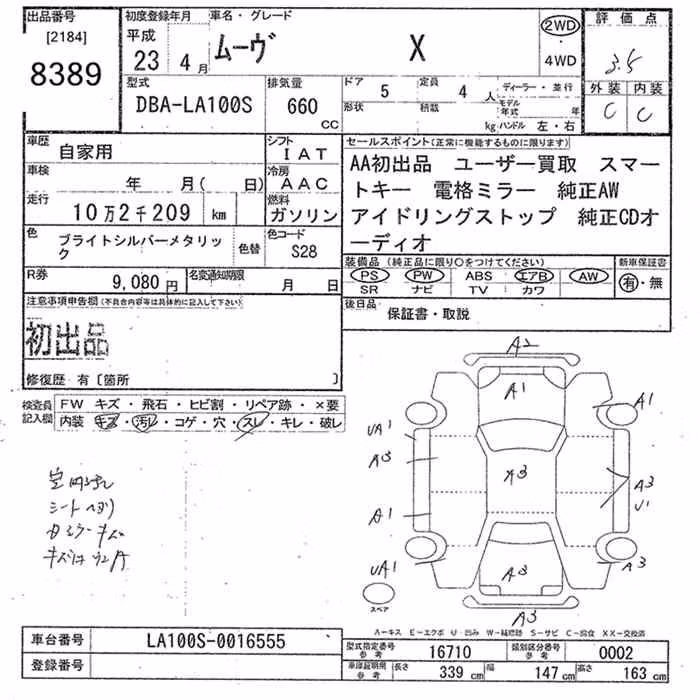 出品番号 初度登録年月 車名・グレード 2WD 評価点
[2184] 平成 ムーヴ X ・ 3.5
8389 23年 4月 4WD 外装 内装
C C
型式 排気量 ドア 5 定員 4人 ディーラー・並行
DBA-LA100S 660cc 形状 積載 kg モデル年式 年
ハンドル 左・右
車歴 自家用 シフト IAT セールスポイント(正常に機能するものに限ります)
車検 年 月( 日) 冷房 AAC AA初出品 ユーザー買取 スマー
走行 10万2千209 km 燃料 ガソリン トキー 電格ミラー 純正AW
色 ブライトシルバーメタリッ 色替 色コード アイドリングストップ 純正CDオ
ク S28 ーディオ
装備品(純正品に限り○をつけてください) 新車保証書
R券 9,080円 名変通知期限 月 日 PS PW ABS エアB AW 有・無
SR ナビ TV カワ
注意事項申告欄(不具合内容等は具体的に記入して下さい) 後日品 保証書・取説
初出品
修復歴 有〔箇所 〕
検査員 FW キズ・飛石・ヒビ割・リペア跡・×要
記入欄 内装 キズ・汚レ・コゲ・穴・スレ・キレ・破レ
A2
A1
A1
UA1
A3
A3
A3
U1
A1
UA1
A3
A3
A3
シートヘタリ
スペア
A-キズ E-エクボ U-凹み W-補修跡 S-サビ C-腐食 XX-交換済
車台番号 LA100S-0016555 型式指定番号 参考 16710 類別区分番号 参考 0002
登録番号 車庫証明用 参考 長さ 339cm 幅 147cm 高さ 163cm